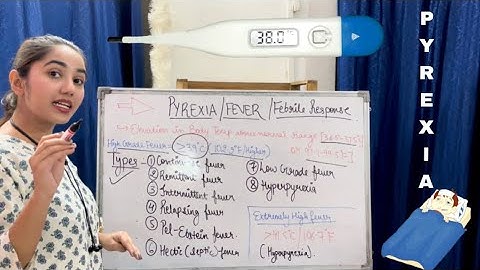 38.0
PYREXIA
PYREXIA/FEVER/Febrile Response
→ Elevation in Body Temp above normal Range
High Grade Fever >39°C
Types
① fever
② Remittent fever
③ Intermittent fever
④ Relapsing fever
⑤ Pel-Ebstein fever
⑥ Hectic (septic) fever
⑦ Low Grade fever
⑧ Hyperpyrexia
Extremely High fever
(Hyperpyrexia)